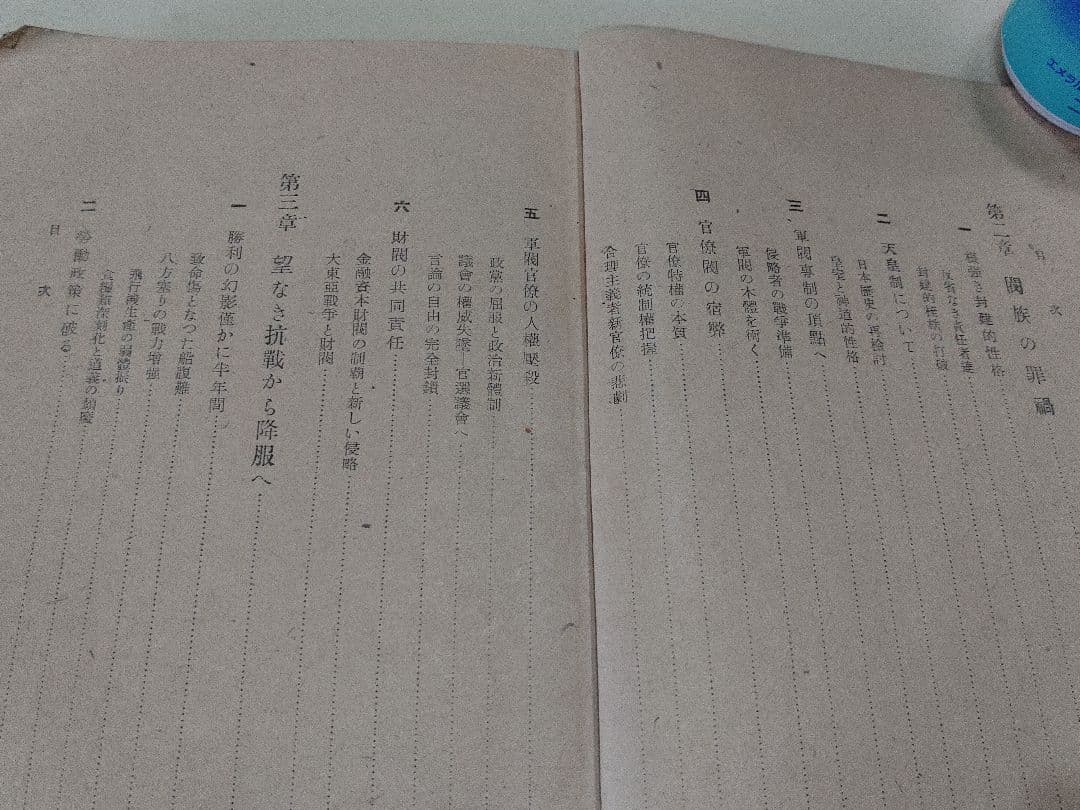 目次
第二章 閥族の罪禍
一 根強き封建的性格
反省なき責任者達
封建的桎梏の打破
二 天皇制について
日本歴史の再檢討
皇室と神道的性格
三 軍閥專制の頂點へ
侵略者の戰爭準備
軍閥の本體を衝く
四 官僚閥の宿弊
官僚特權の本質
官僚の統制權把握
合理主義者新官僚の悲劇
五 軍閥官僚の人權壓殺
政黨の屈服と政治新體制
議會の權威失墜―官選議會へ
言論の自由の完全封鎖
六 財閥の共同責任
金融資本財閥の制覇と新しい侵略
大東亞戰爭と財閥
第三章 望なき抗戰から降服へ
一 勝利の幻影僅かに半年間
致命傷となつた船腹難
八方塞りの戰力増強
飛行機生產の弱體振り
食糧難深刻化と道義の頽廢
二 勞働政策に破る
目次
エメラル